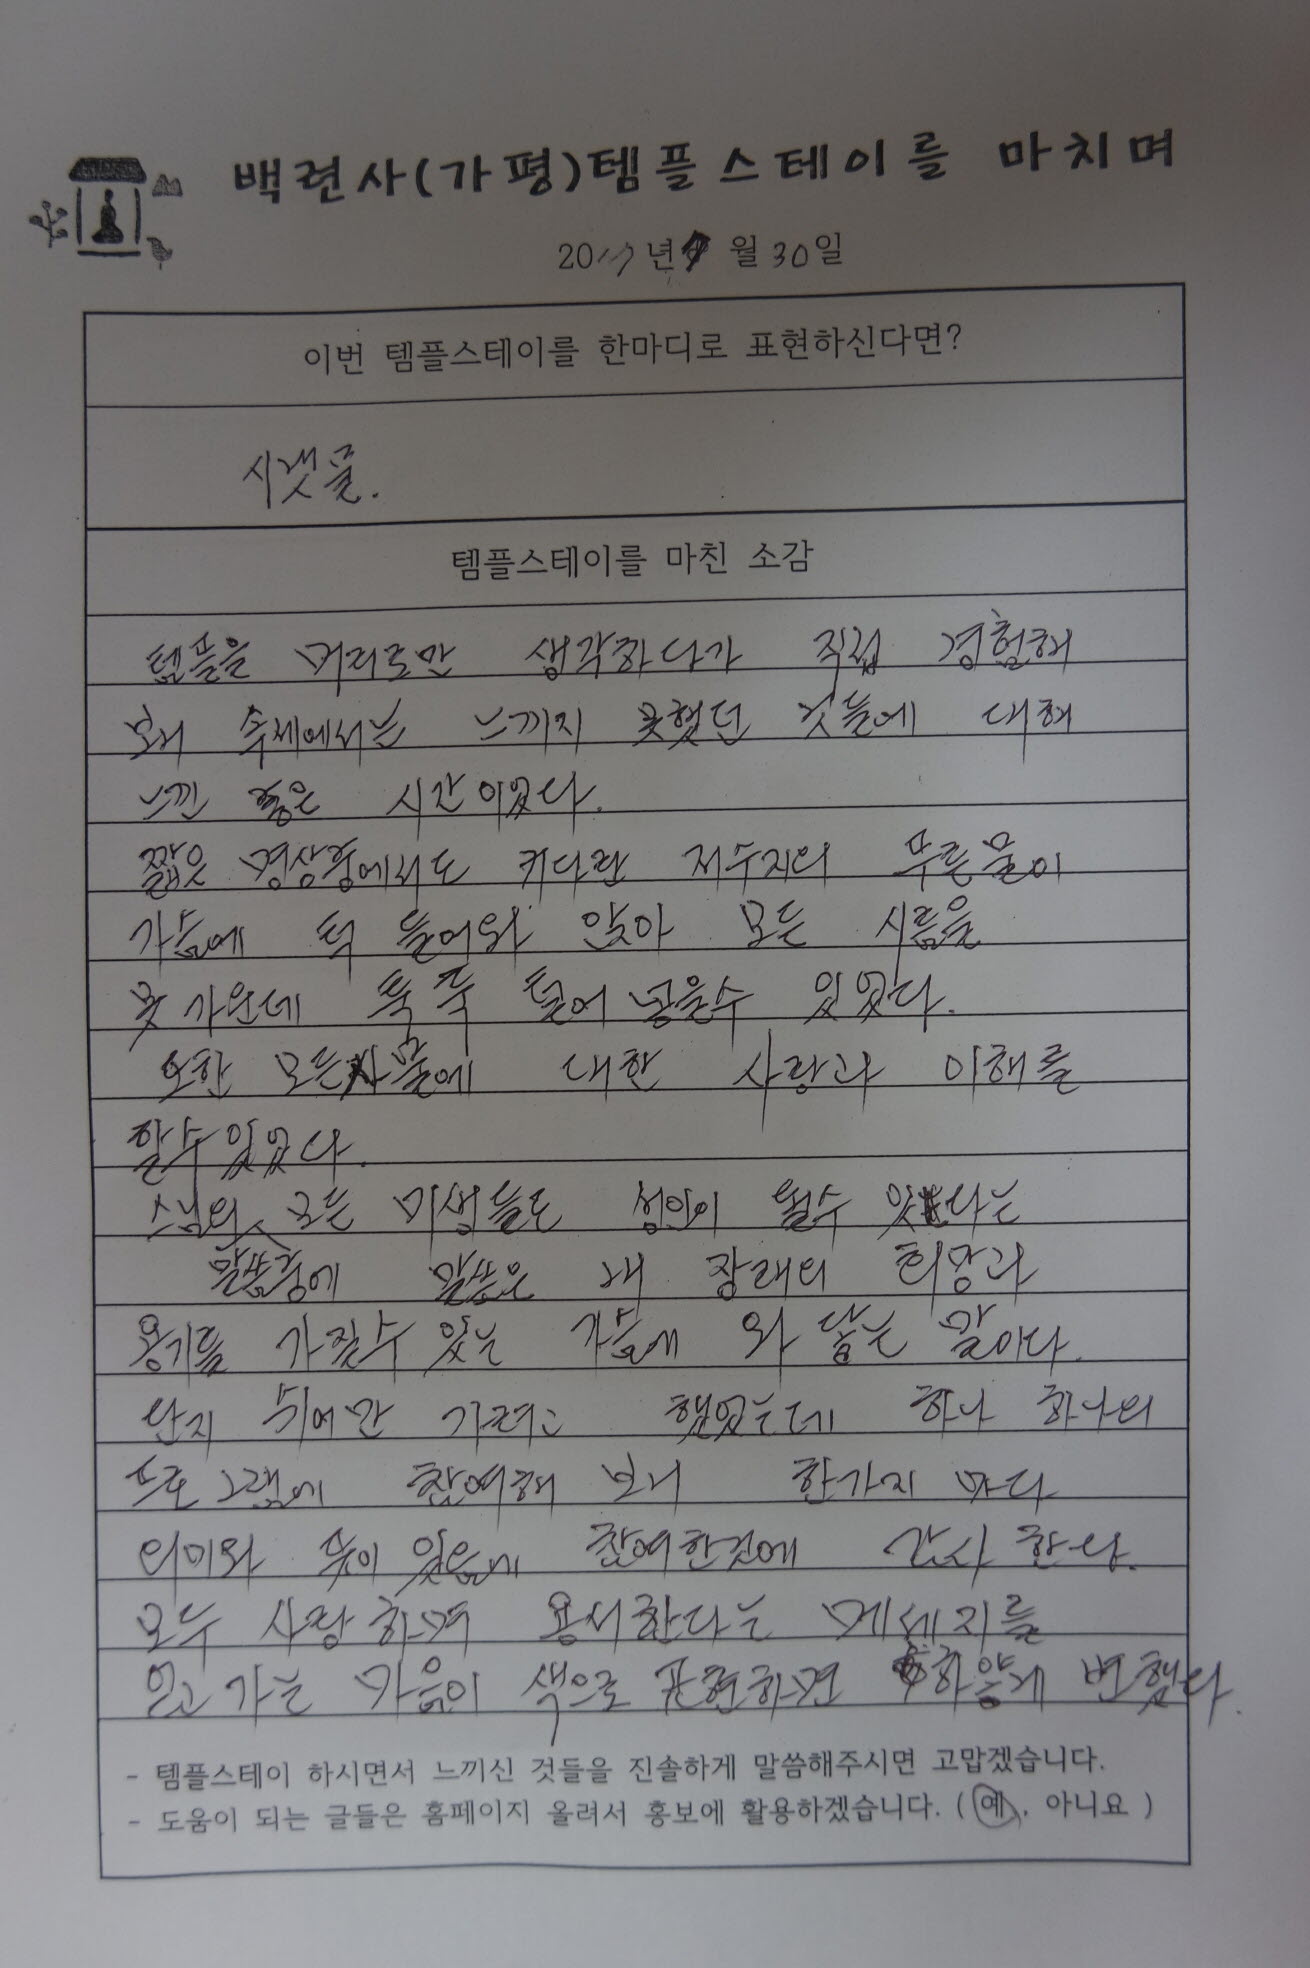 백련사(가평)템플스테이를 마치며
2017년 9월 30일
이번 템플스테이를 한마디로 표현하신다면?
시냇물.
템플스테이를 마친 소감
템플을 머리로만 생각하다가 직접 경험해
보니 속세에서는 느끼지 못했던 것들에 대해
느낀 좋은 시간이었다.
짧은 명상중에서도 커다란 저수지의 푸른물이
가슴에 턱 들어와 앉아 모든 시름을
못 가운데 툭 툭 털어 넣을수 있었다.
또한 모든사물에 대한 사랑과 이해를
할수 있었다.
스님의 모든 미생들도 성인이 될수 있다는
말씀중에 말씀은 내 장래의 희망과
용기를 가질수 있는 가슴에 와 닿는 말이다.
단지 쉬어만 가려고 했었는데 하나 하나의
프로그램에 참여해 보니 한가지 마다
의미와 뜻이 있음에 참여한것에 감사 한다.
모두 사랑하며 용서한다는 메세지를
얻고 가는 마음이 색으로 표현하면 하얗게 변했다.
- 템플스테이 하시면서 느끼신 것들을 진솔하게 말씀해주시면 고맙겠습니다.
- 도움이 되는 글들은 홈페이지 올려서 홍보에 활용하겠습니다. ( 예 , 아니요 )